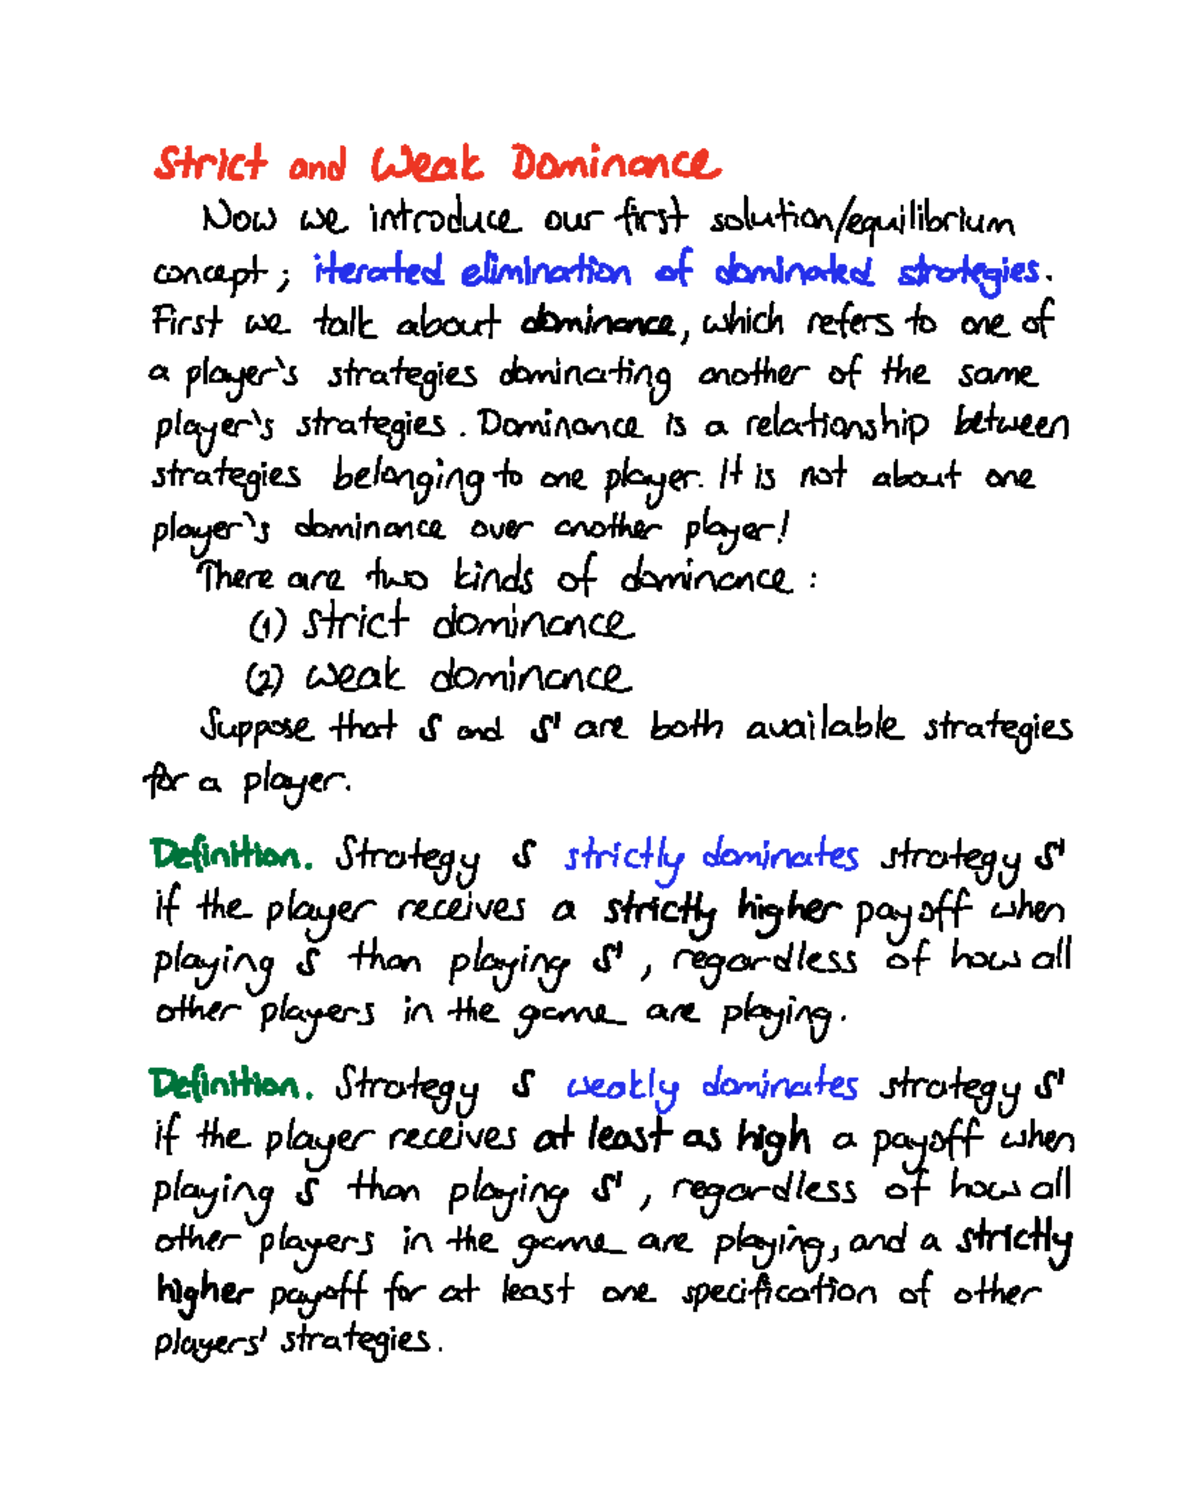 Strict and Weak Dominance
Now we introduce our first solution/equilibrium
concept; iterated elimination of dominated strategies.
First we talk about dominance, which refers to one of
a player's strategies dominating another of the same
player's strategies. Dominance is a relationship between
strategies belonging to one player. It is not about one
player's dominance over another player!
There are two kinds of dominance:
(1) strict dominance
(2) weak dominance
Suppose that S and S' are both available strategies
for a player.
Definition. Strategy S strictly dominates strategy S'
if the player receives a strictly higher payoff when
playing S than playing S', regardless of how all
other players in the game are playing.
Definition. Strategy S weakly dominates strategy S'
if the player receives at least as high a payoff when
playing S than playing S', regardless of how all
other players in the game are playing, and a strictly
higher payoff for at least one specification of other
players' strategies.